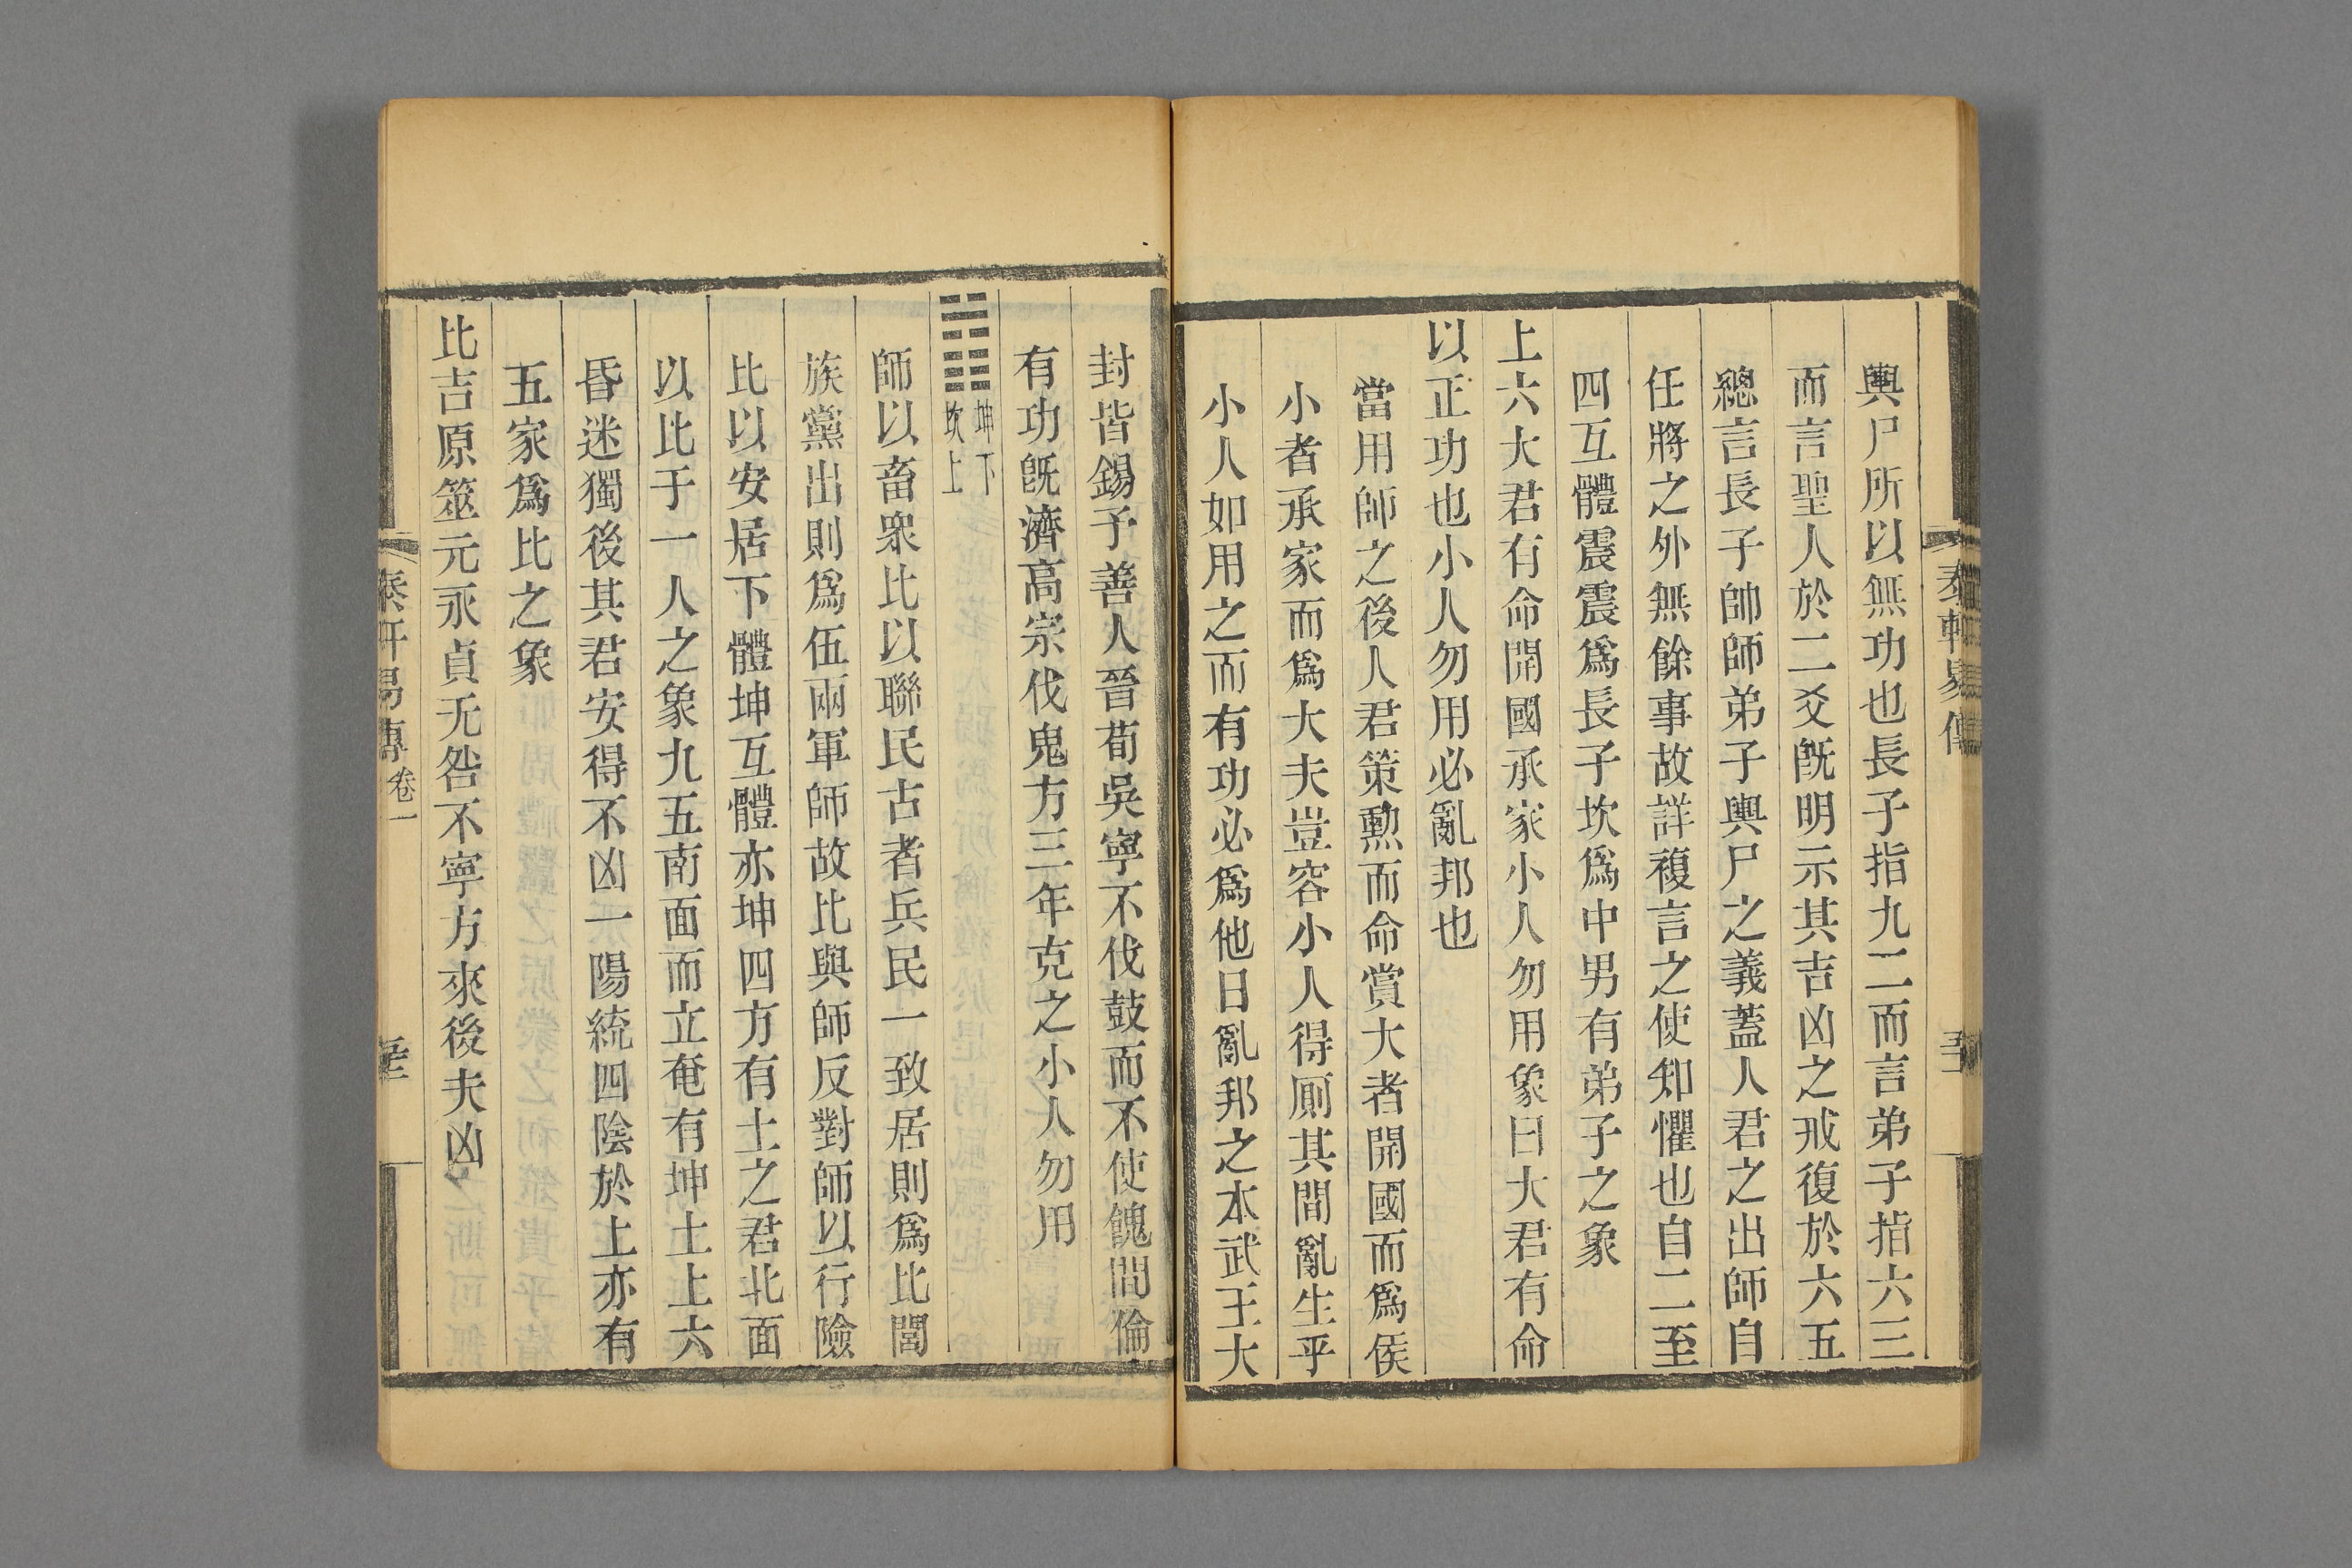 輿尸所以無功也長子指九二而言弟子指六三
而言聖人於二爻旣明示其吉凶之戒復於六五
總言長子帥師弟子輿尸之義蓋人君之出師自
任將之外無餘事故詳複言之使知懼也自二至
四互體震震爲長子坎爲中男有弟子之象
上六大君有命開國承家小人勿用象曰大君有命
以正功也小人勿用必亂邦也
當用師之後人君策勲而命賞大者開國而爲侯
小者承家而爲大夫豈容小人得厠其間亂生乎
小人如用之而有功必爲他日亂邦之本武王大
封皆錫予善人晉荀吳寧不伐鼓而不使餽間倫
有功旣濟高宗伐鬼方三年克之小人勿用
坤下
坎上
師以畜衆比以聯民古者兵民一致居則爲比閭
族黨出則爲伍兩軍師故比與師反對師以行險
比以安居下體坤互體亦坤四方有土之君北面
以比于一人之象九五南面而立奄有坤土上六
昏迷獨後其君安得不凶一陽統四陰於上亦有
五家爲比之象
比吉原筮元永貞无咎不寧方來後夫凶
易傳卷一